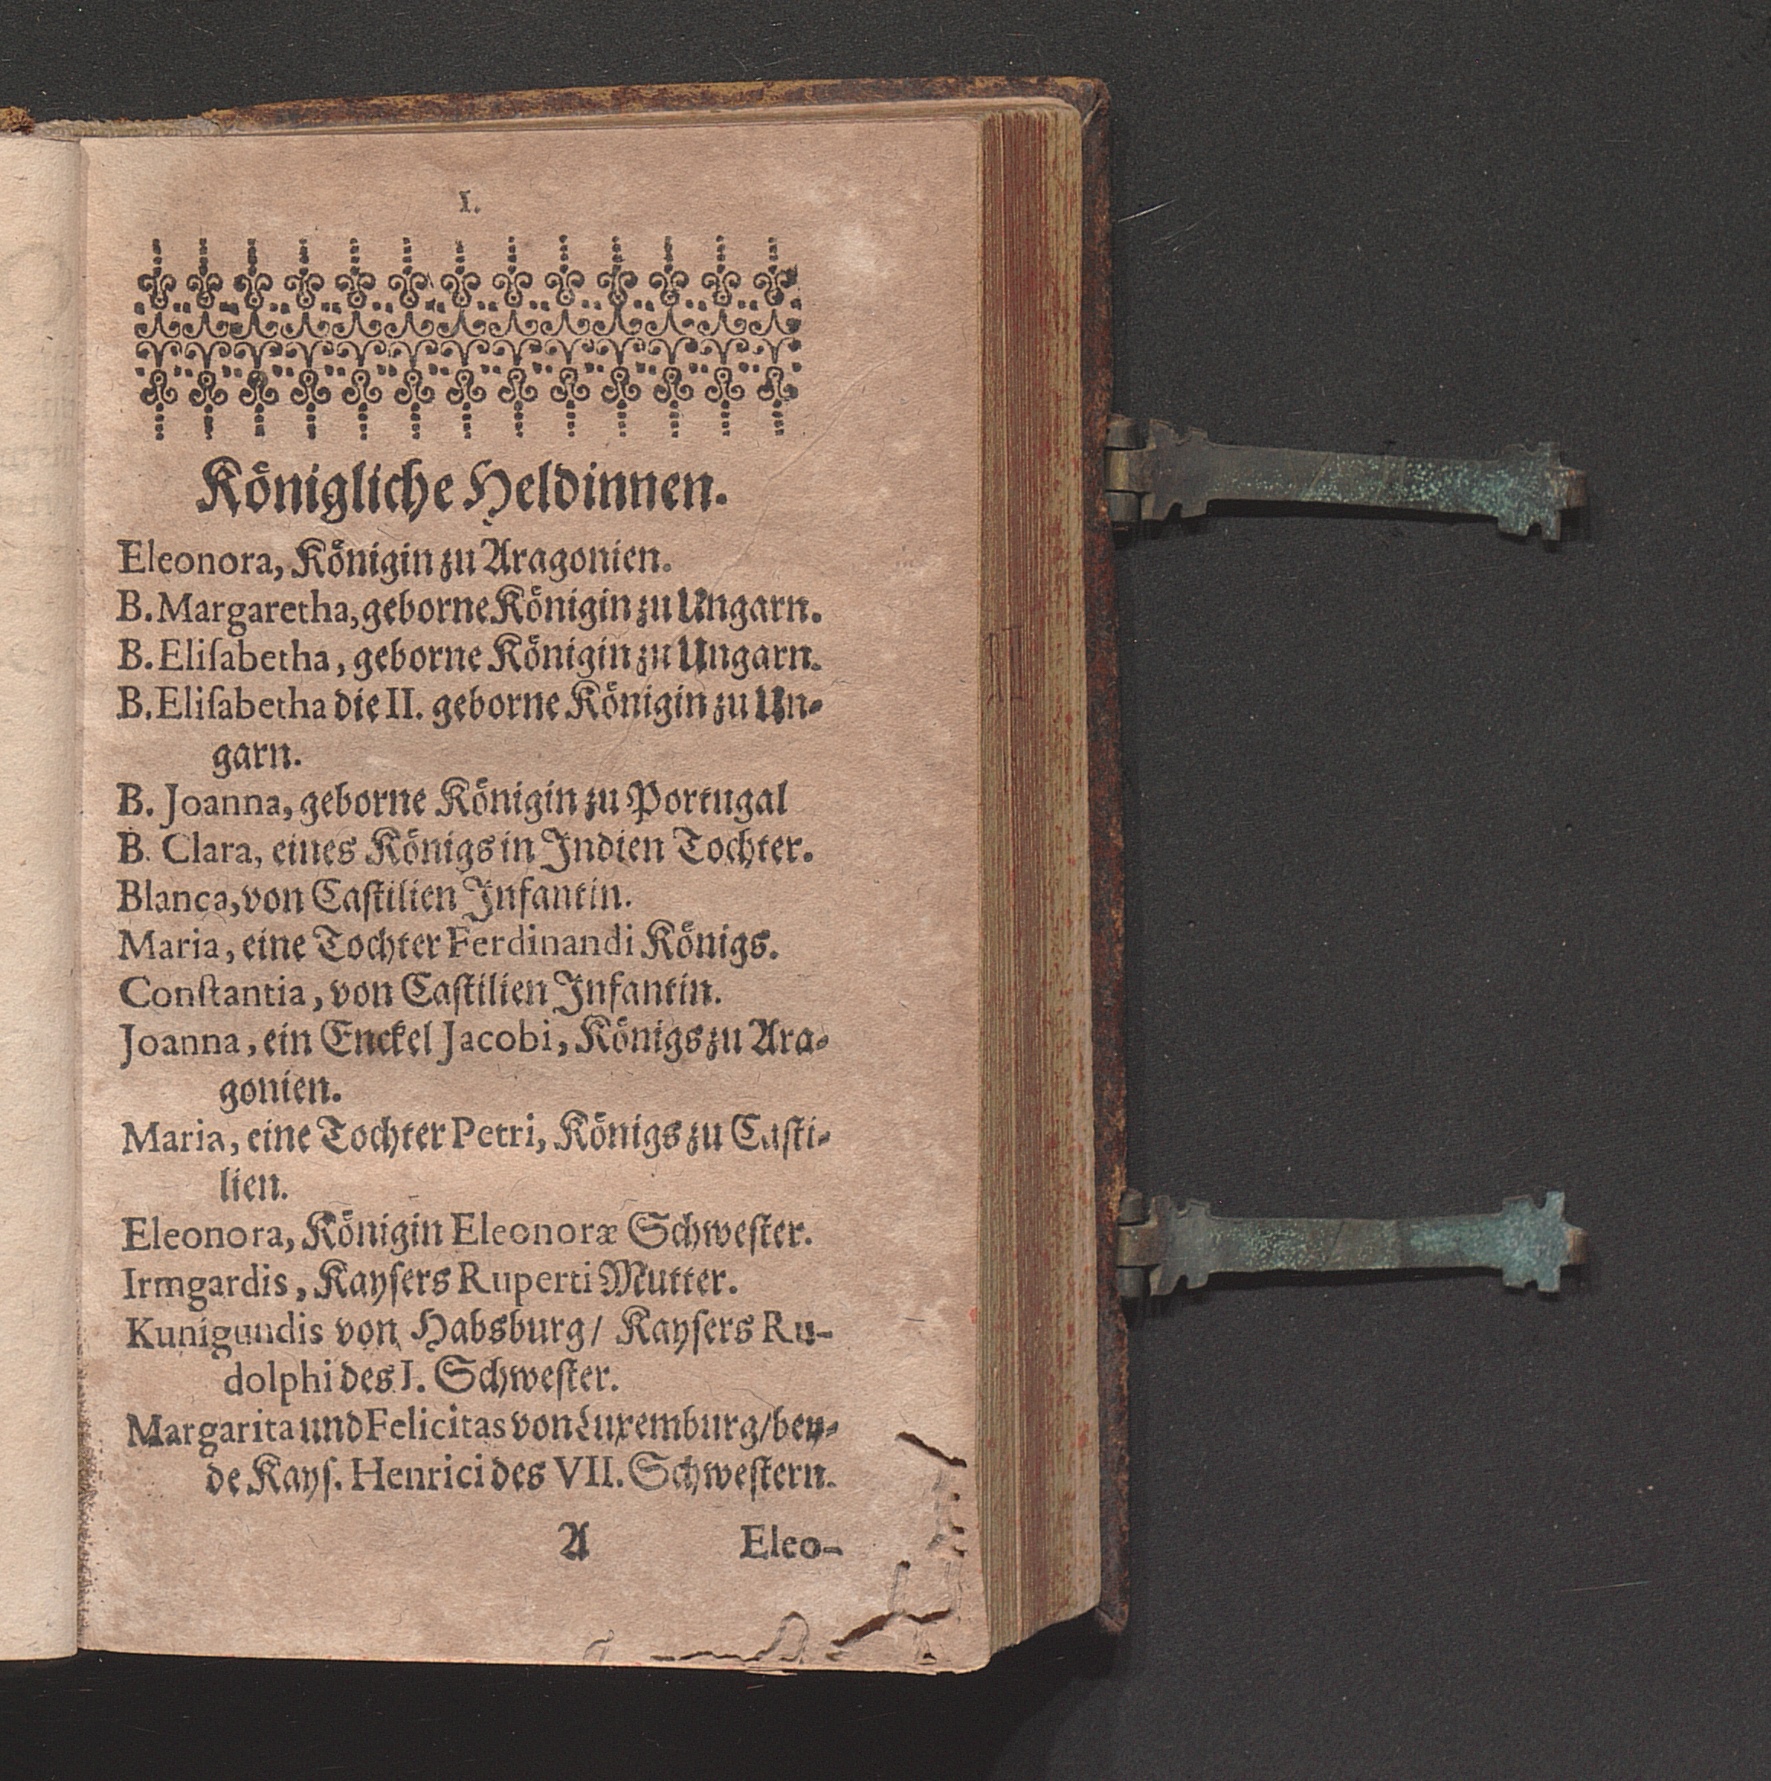 1.
Königliche Heldinnen.
Eleonora, Königin zu Aragonien.
B. Margaretha, geborne Königin zu Ungarn.
B. Eliſabetha, geborne Königin zu Ungarn.
B. Eliſabetha die II. geborne Königin zu Un-
garn.
B. Joanna, geborne Königin zu Portugal
B. Clara, eines Königs in Indien Tochter.
Blanca, von Caſtilien Infantin.
Maria, eine Tochter Ferdinandi Königs.
Conſtantia, von Caſtilien Infantin.
Joanna, ein Enckel Jacobi, Königs zu Ara-
gonien.
Maria, eine Tochter Petri, Königs zu Caſti-
lien.
Eleonora, Königin Eleonoræ Schweſter.
Irmgardis, Kayſers Ruperti Mutter.
Kunigundis von Habsburg/ Kayſers Ru-
dolphi des I. Schweſter.
Margarita und Felicitas von Luxemburg/ bey-
de Kayſ. Henrici des VII. Schweſtern.
A Eleo-